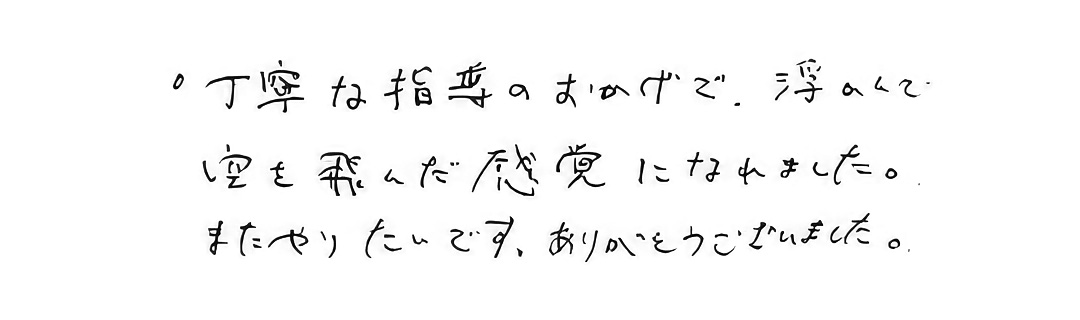 。丁寧な指導のおかげで、浮んで
空を飛んだ感覚になれました。
またやりたいです。ありがとうございました。